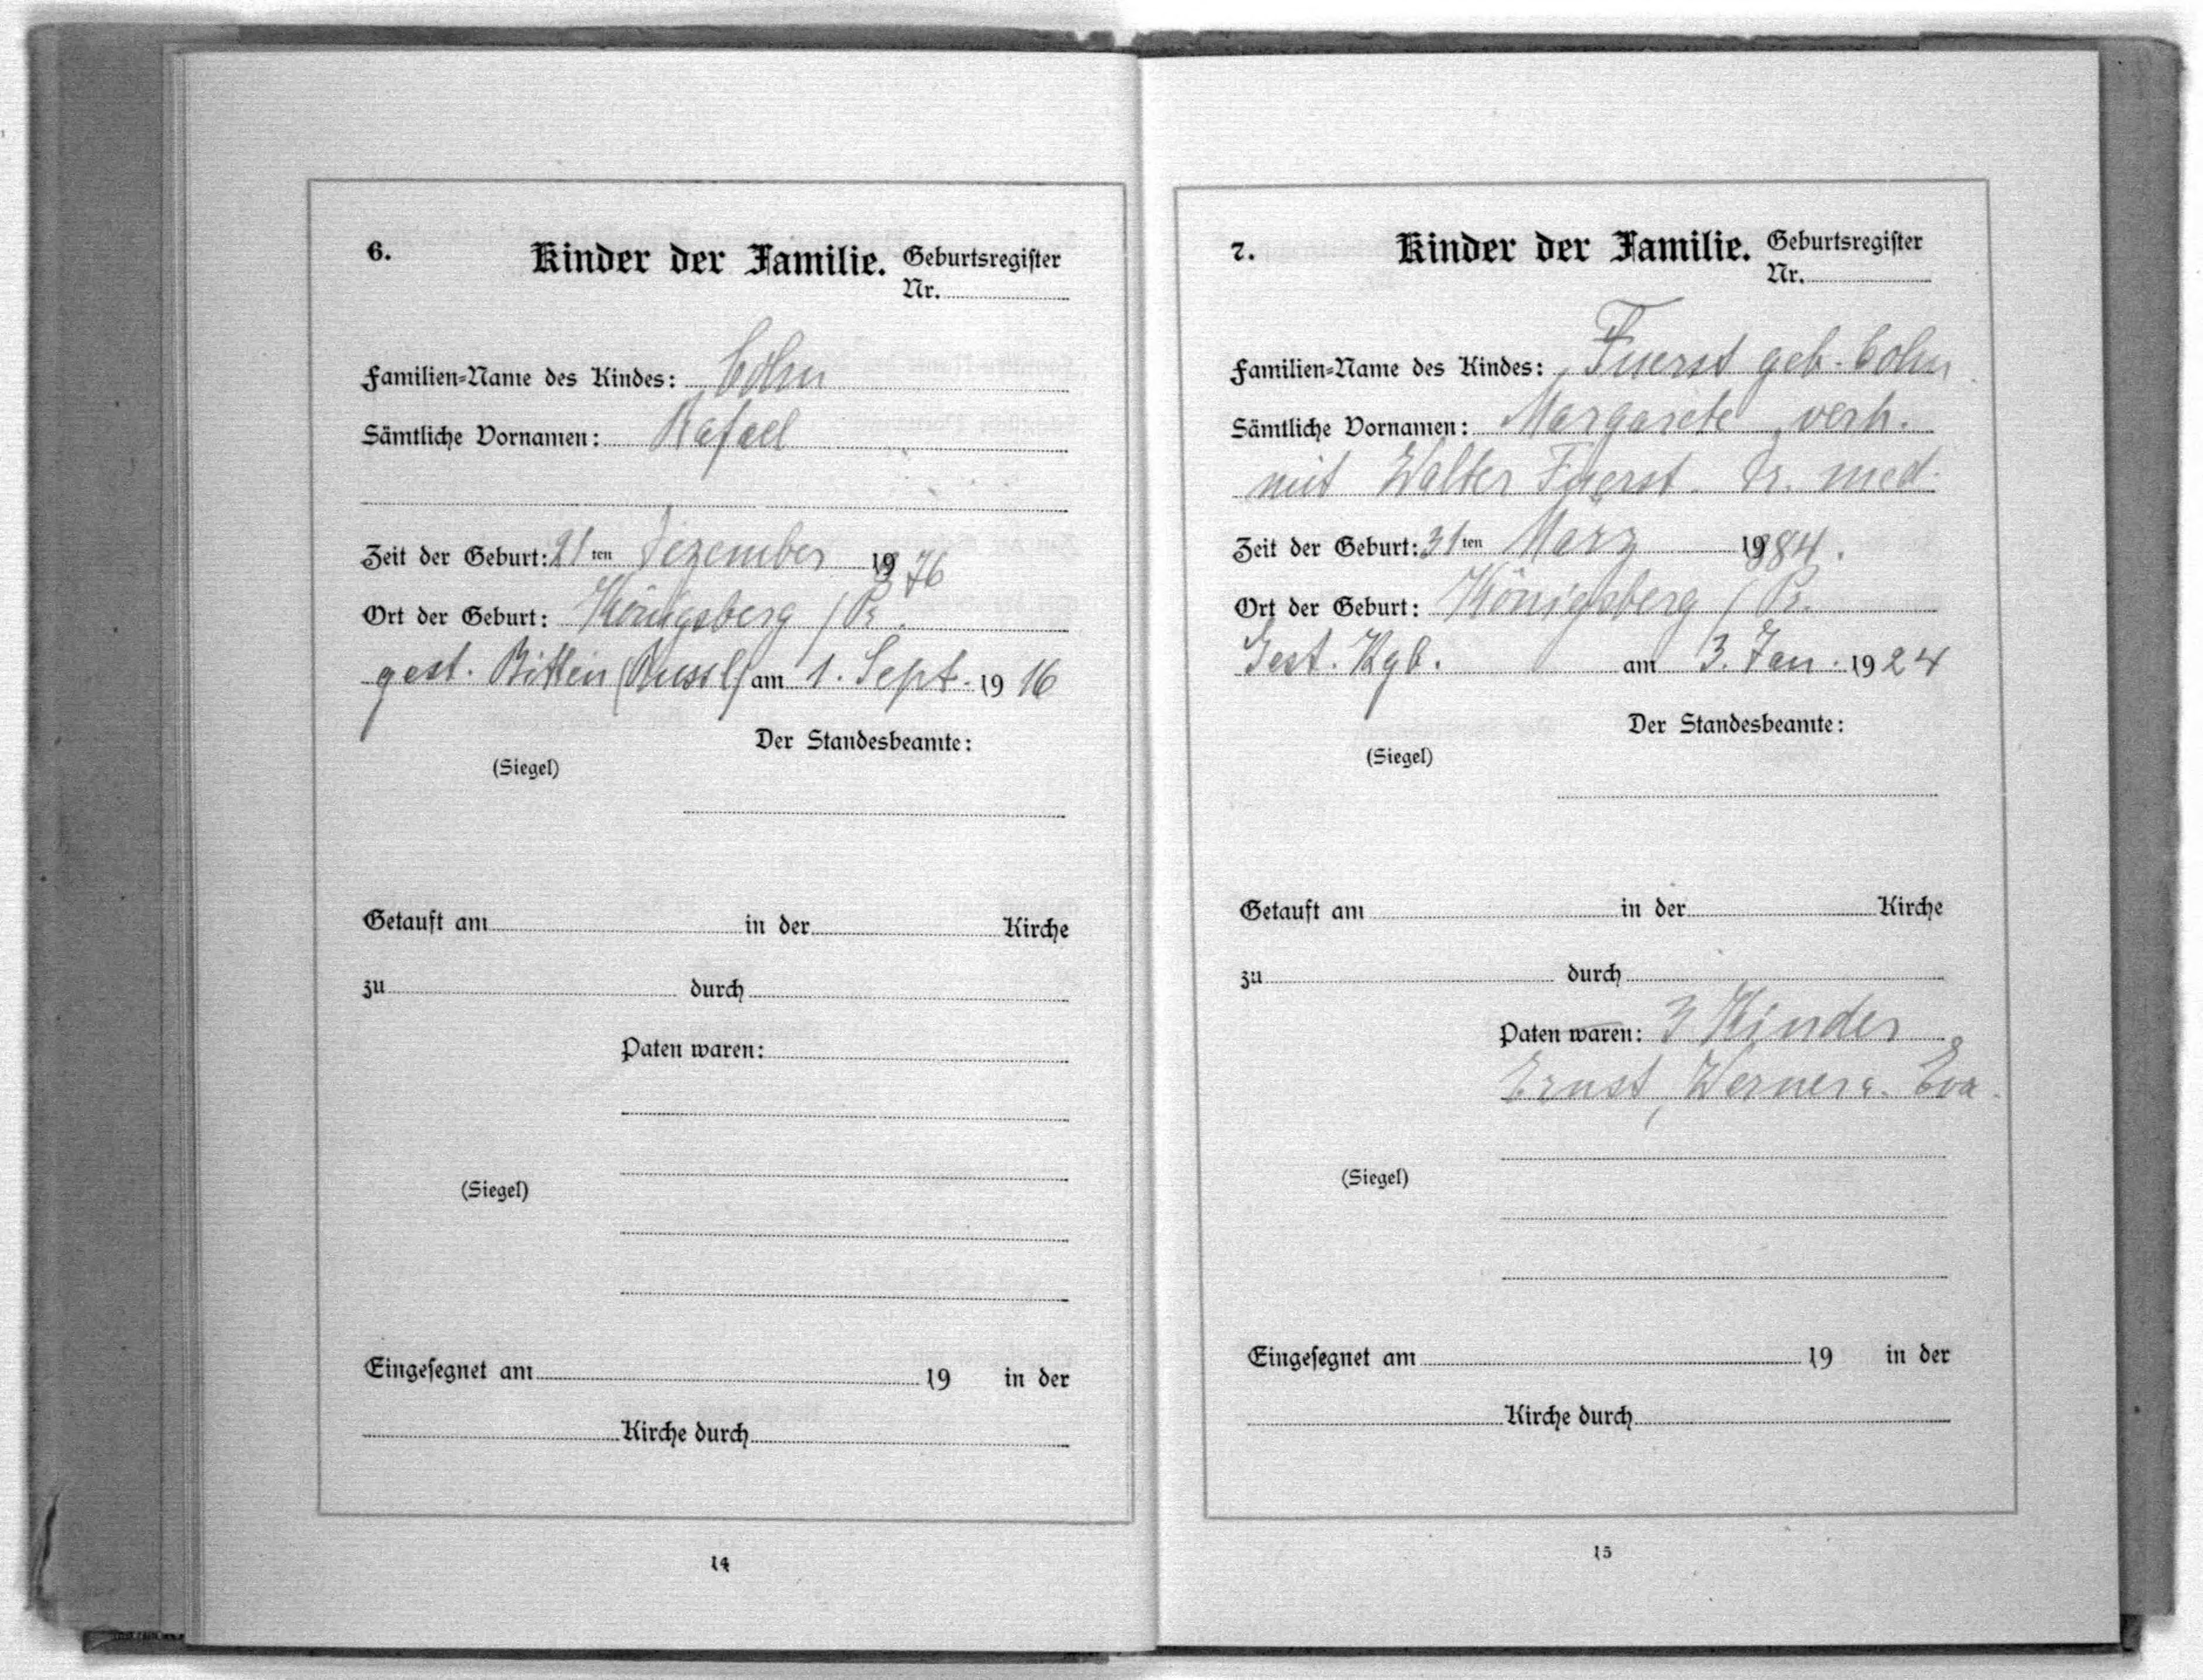 6. Kinder der Familie. Geburtsregister
Nr.
Familien-Name des Kindes: Cohn
Sämtliche Vornamen: Rafael
Zeit der Geburt: 21ten Dezember 19 876
Ort der Geburt: Königsberg / Pr.
gest. (Russl) am 1. Sept. 1916
Der Standesbeamte:
(Siegel)
Getauft am in der Kirche
zu durch
Paten waren:
(Siegel)
Eingesegnet am 19 in der
Kirche durch
14
7. Kinder der Familie. Geburtsregister
Nr.
Familien-Name des Kindes: Fuerst geb. Cohn
Sämtliche Vornamen: Margarete verh.
mit Walter Fuerst. Dr. med.
Zeit der Geburt: 31ten März 19884.
Ort der Geburt: Königsberg / Pr.
Gest. Kgb. am 3. Jan. 1924
Der Standesbeamte:
(Siegel)
Getauft am in der Kirche
zu durch
Paten waren: 3 Kinder
Ernst, Werner u. Eva.
(Siegel)
Eingesegnet am 19 in der
Kirche durch
15